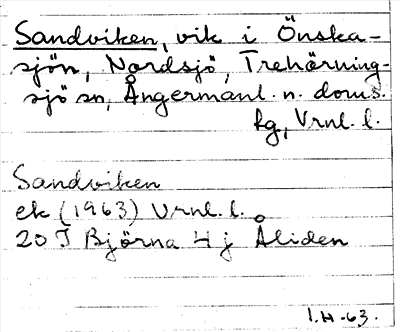 Sandviken, vik i Önska-
sjön, Nordsjö, Trehörning-
sjö sn, Ångermanl. n. doms.
fg, Vrnl. l.
Sandviken
ek (1963) Vrnl. l.
20 J Björna 4 j Åliden
I.H-63.